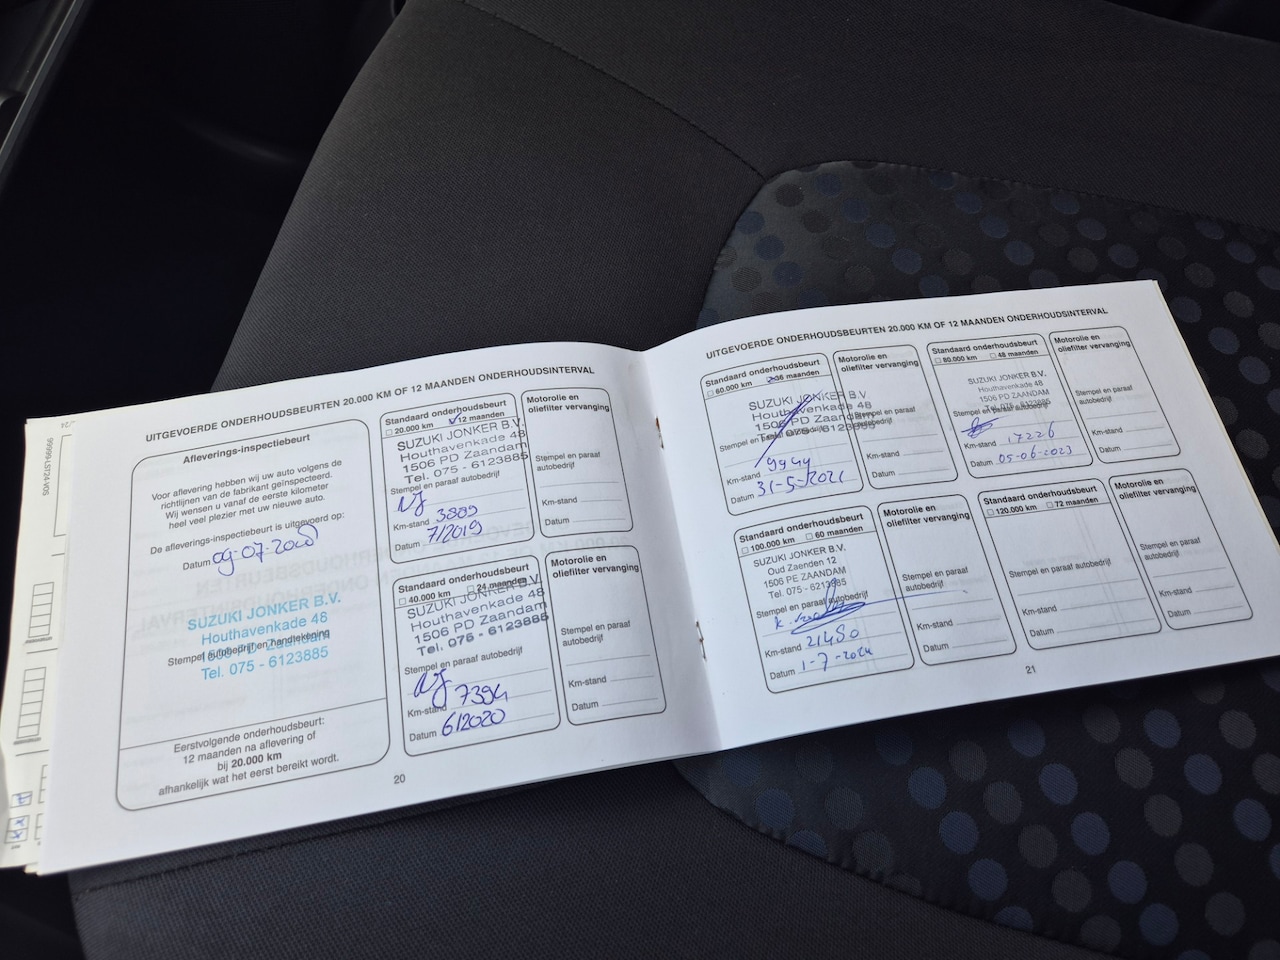 99999-LST24-VOS
UITGEVOERDE ONDERHOUDSBEURTEN 20.000 KM OF 12 MAANDEN ONDERHOUDSINTERVAL
Afleverings-inspectiebeurt
Voor aflevering hebben wij uw auto volgens de
richtlijnen van de fabrikant geïnspecteerd.
Wij wensen u vanaf de eerste kilometer
heel veel plezier met uw nieuwe auto.
De afleverings-inspectiebeurt is uitgevoerd op:
Datum 09-07-2020
SUZUKI JONKER B.V.
Houthavenkade 48
Stempel autobedrijf en handtekening
1506 PD Zaandam
Tel. 075 - 6123885
Eerstvolgende onderhoudsbeurt:
12 maanden na aflevering of
bij 20.000 km
afhankelijk wat het eerst bereikt wordt.
Standaard onderhoudsbeurt
20.000 km 12 maanden
SUZUKI JONKER B.V.
Houthavenkade 48
1506 PD Zaandam
Tel. 075 - 6123885
Stempel en paraaf autobedrijf
Km-stand 3889
Datum 7/2019
Motorolie en
oliefilter vervanging
Stempel en paraaf
autobedrijf
Km-stand
Datum
Standaard onderhoudsbeurt
40.000 km 24 maanden
SUZUKI JONKER B.V.
Houthavenkade 48
1506 PD Zaandam
Tel. 075 - 6123885
Stempel en paraaf autobedrijf
Km-stand 7394
Datum 6/2020
Motorolie en
oliefilter vervanging
Stempel en paraaf
autobedrijf
Km-stand
Datum
20
UITGEVOERDE ONDERHOUDSBEURTEN 20.000 KM OF 12 MAANDEN ONDERHOUDSINTERVAL
Standaard onderhoudsbeurt
60.000 km 36 maanden
SUZUKI JONKER B.V.
Houthavenkade 48
1506 PD Zaandam
Tel. 075 - 6123885
Stempel en paraaf autobedrijf
Km-stand 9944
Datum 31-5-2021
Motorolie en
oliefilter vervanging
Stempel en paraaf
autobedrijf
Km-stand
Datum
Standaard onderhoudsbeurt
80.000 km 48 maanden
SUZUKI JONKER B.V.
Houthavenkade 48
1506 PD ZAANDAM
Tel. 075 - 6123885
Stempel en paraaf autobedrijf
Km-stand 17226
Datum 05-06-2023
Motorolie en
oliefilter vervanging
Stempel en paraaf
autobedrijf
Km-stand
Datum
Standaard onderhoudsbeurt
100.000 km 60 maanden
SUZUKI JONKER B.V.
Oud Zaenden 12
1506 PE ZAANDAM
Tel. 075 - 6123885
Stempel en paraaf autobedrijf
Km-stand 21480
Datum 1-7-2024
Motorolie en
oliefilter vervanging
Stempel en paraaf
autobedrijf
Km-stand
Datum
Standaard onderhoudsbeurt
120.000 km 72 maanden
Stempel en paraaf autobedrijf
Km-stand
Datum
Motorolie en
oliefilter vervanging
Stempel en paraaf
autobedrijf
Km-stand
Datum
21